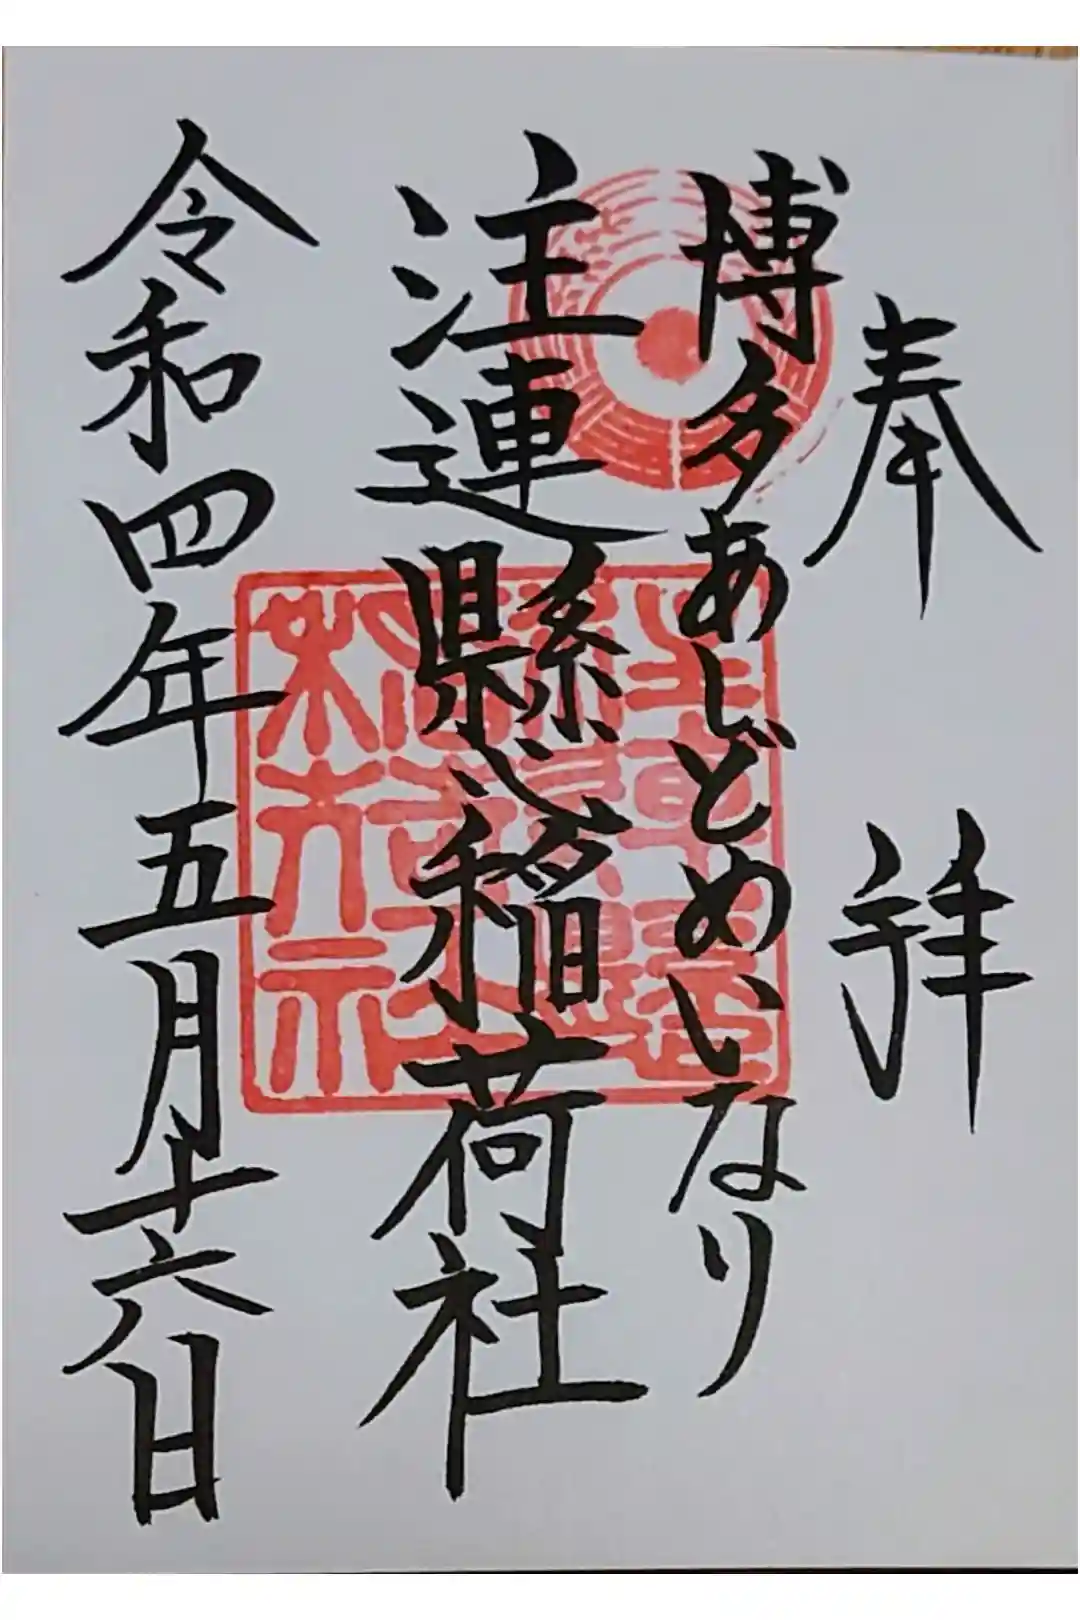 奉拝
博多あしどめいなり
注連懸稲荷社
令和四年五月十六日